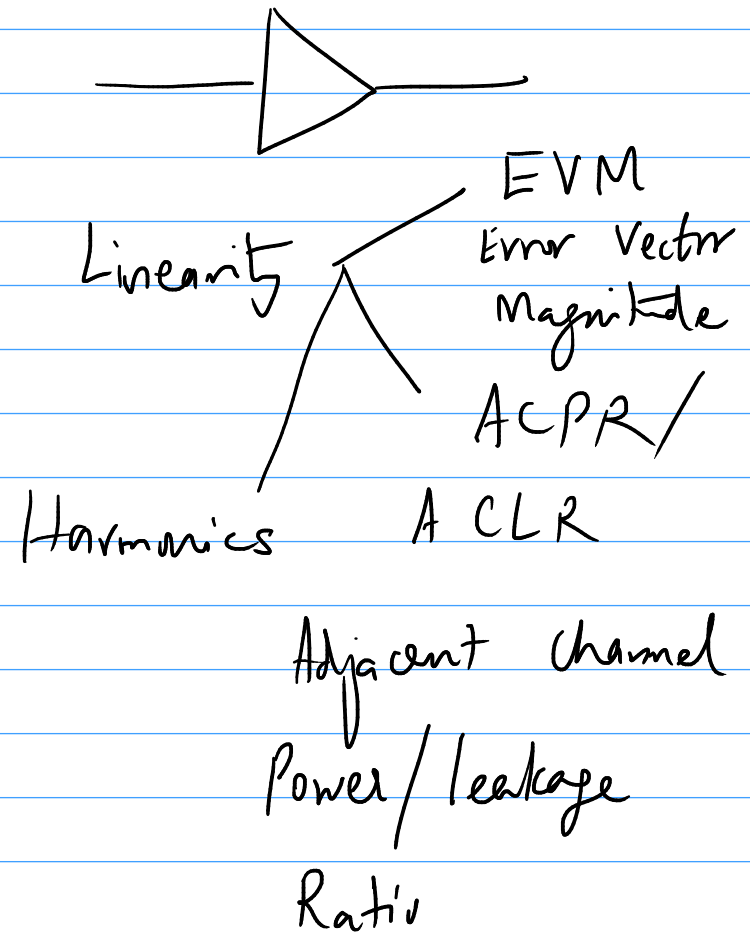 EVM
Linearity
Error Vector
Magnitude
ACPR/
Harmonics
ACLR
Adjacent Channel
Power/leakage
Ratio